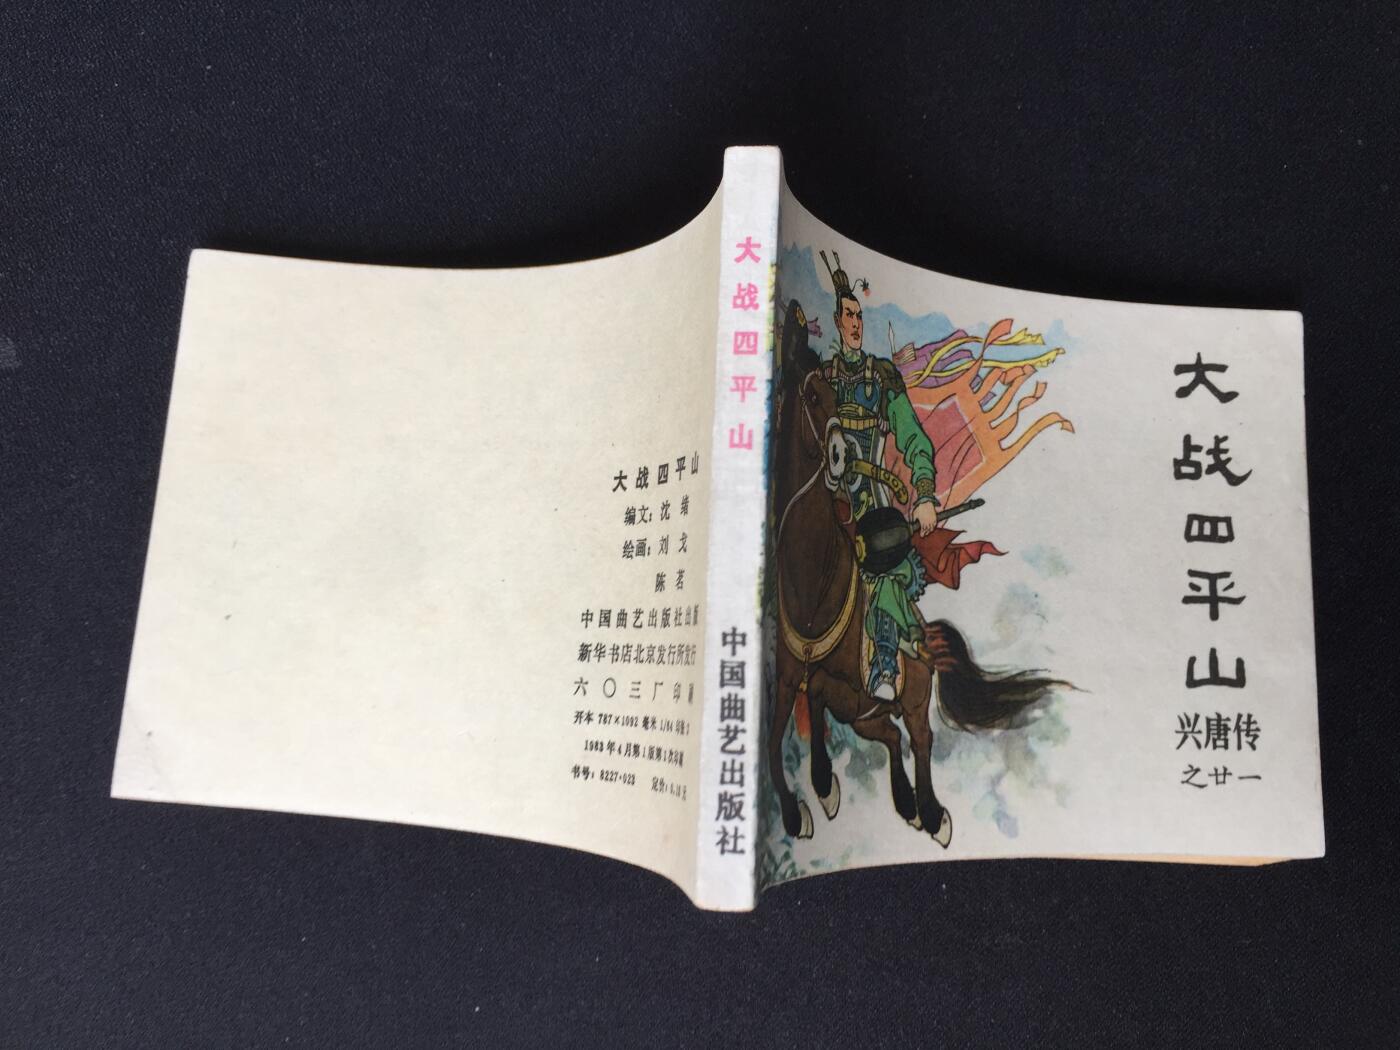 大战四平山
兴唐传
之廿一
大战四平山
中国曲艺出版社
大战四平山
编文：沈绪
绘画：刘戈
陈茗
中国曲艺出版社出版
新华书店北京发行所发行
六〇三厂印刷
开本 787×1092 毫米 1/64 印张 3
1983年4月第1版第1次印刷
书号：8227·023 定价：0.18元